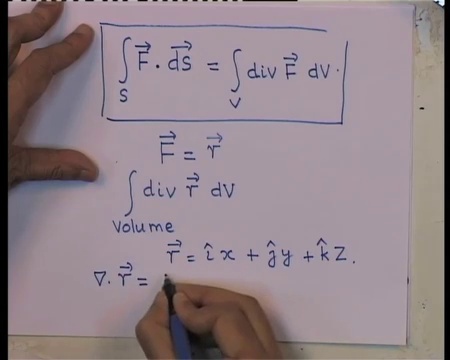 ∫_S F⃗ · d⃗S = ∫_V div F⃗ dV.
F⃗ = r⃗
∫_volume div r⃗ dV
r⃗ = î x + ĵ y + k̂ z.
∇· r⃗ =